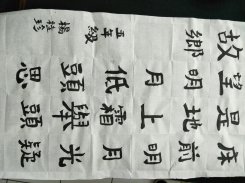 床前明月光疑
是地上霜舉頭
望明月低頭思
故鄉
五年級 楊珍